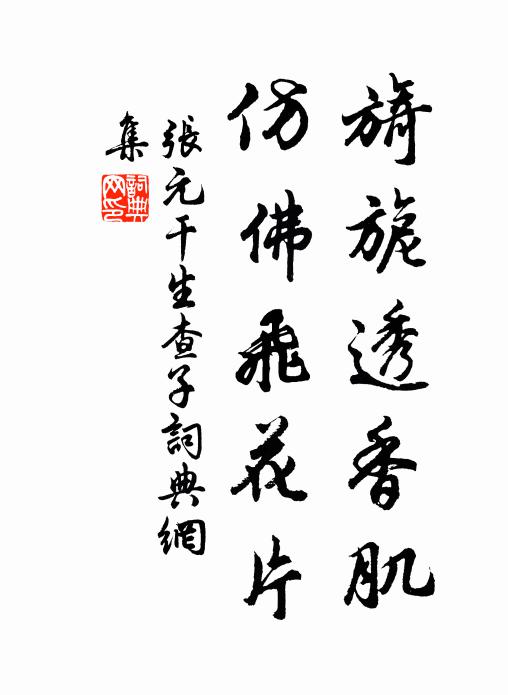 旖旎透香肌
仿佛飛花片
張元干生查子詞典網
集
詞典
网印